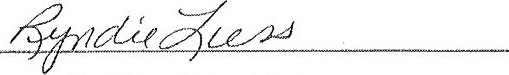 Ryndie Luess